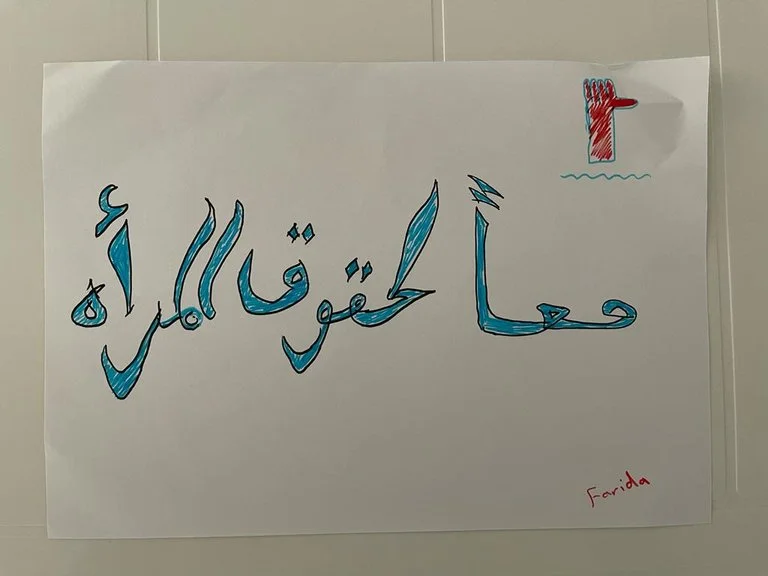 معاً لحقوق المرأه
Farida